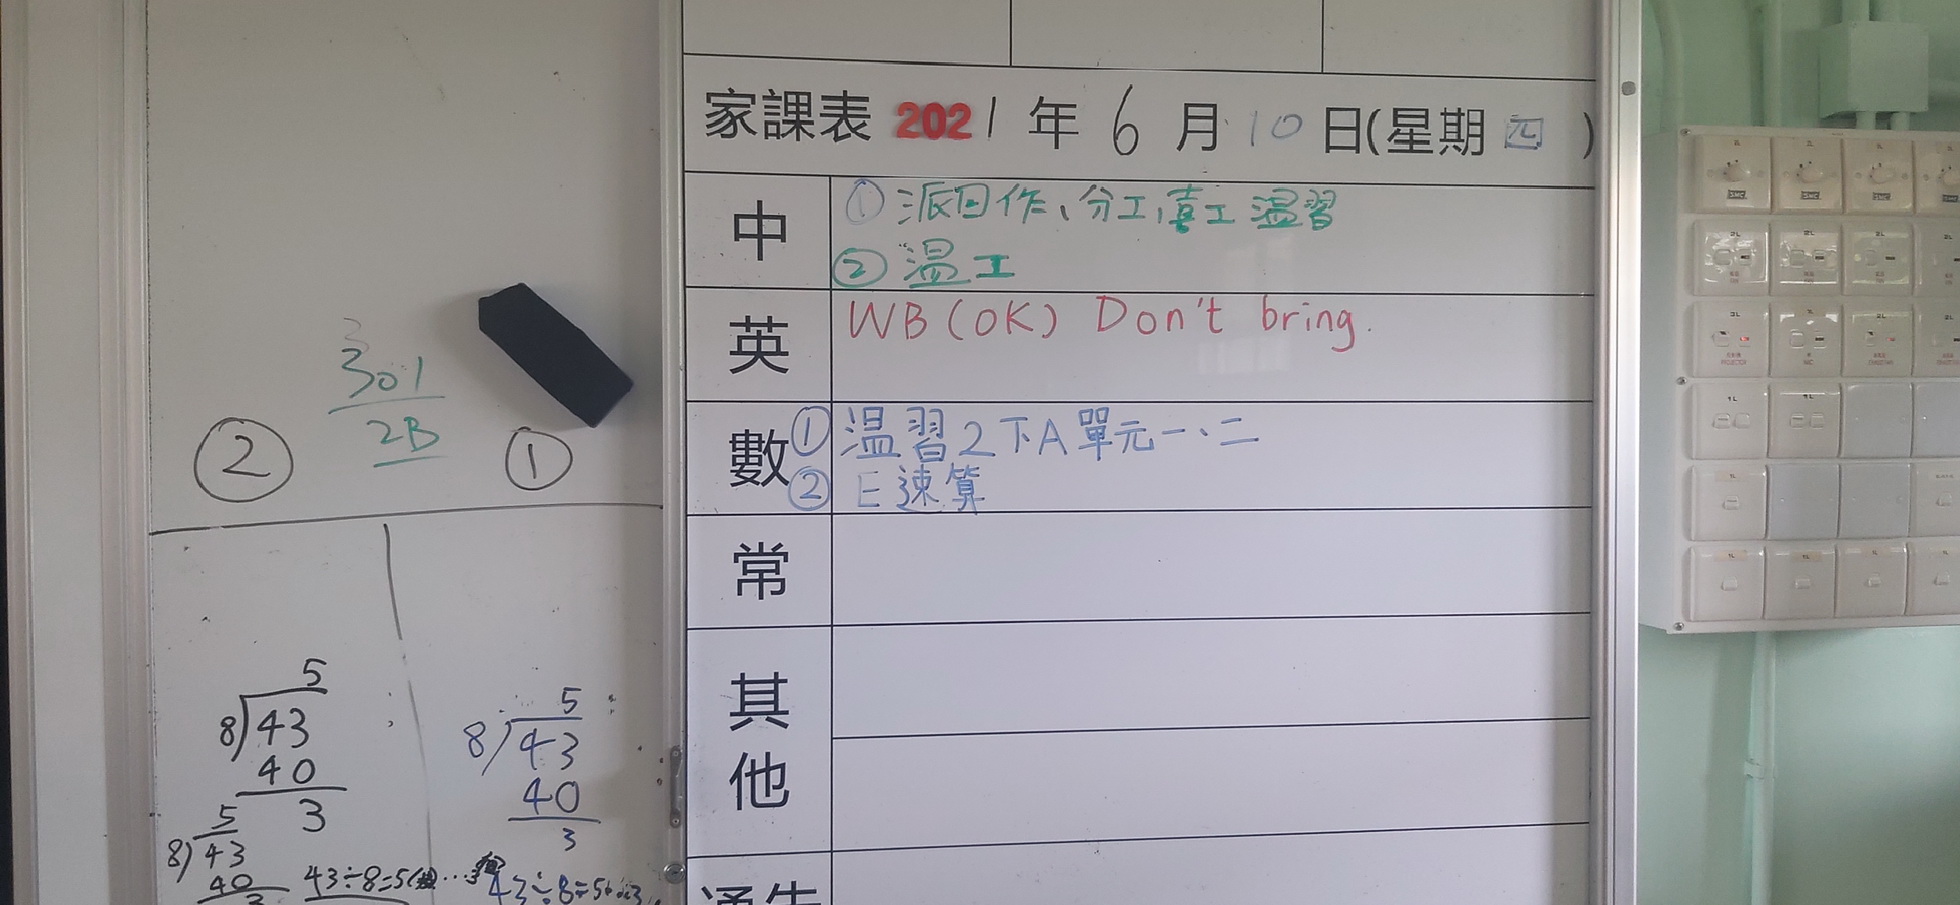 家課表 2021 年 6 月 10 日(星期 四 )
中
① 派回作、分工,喜工 温習
② 温工
英
WB (OK) Don't bring.
數
① 温習 2下A 單元一、二
② E 速算
常
其他
通告
301
2B
②
①
5
8)43
40
3
5
8)43
40
3
5
8)43
40
3
43÷8=5
43÷8=5